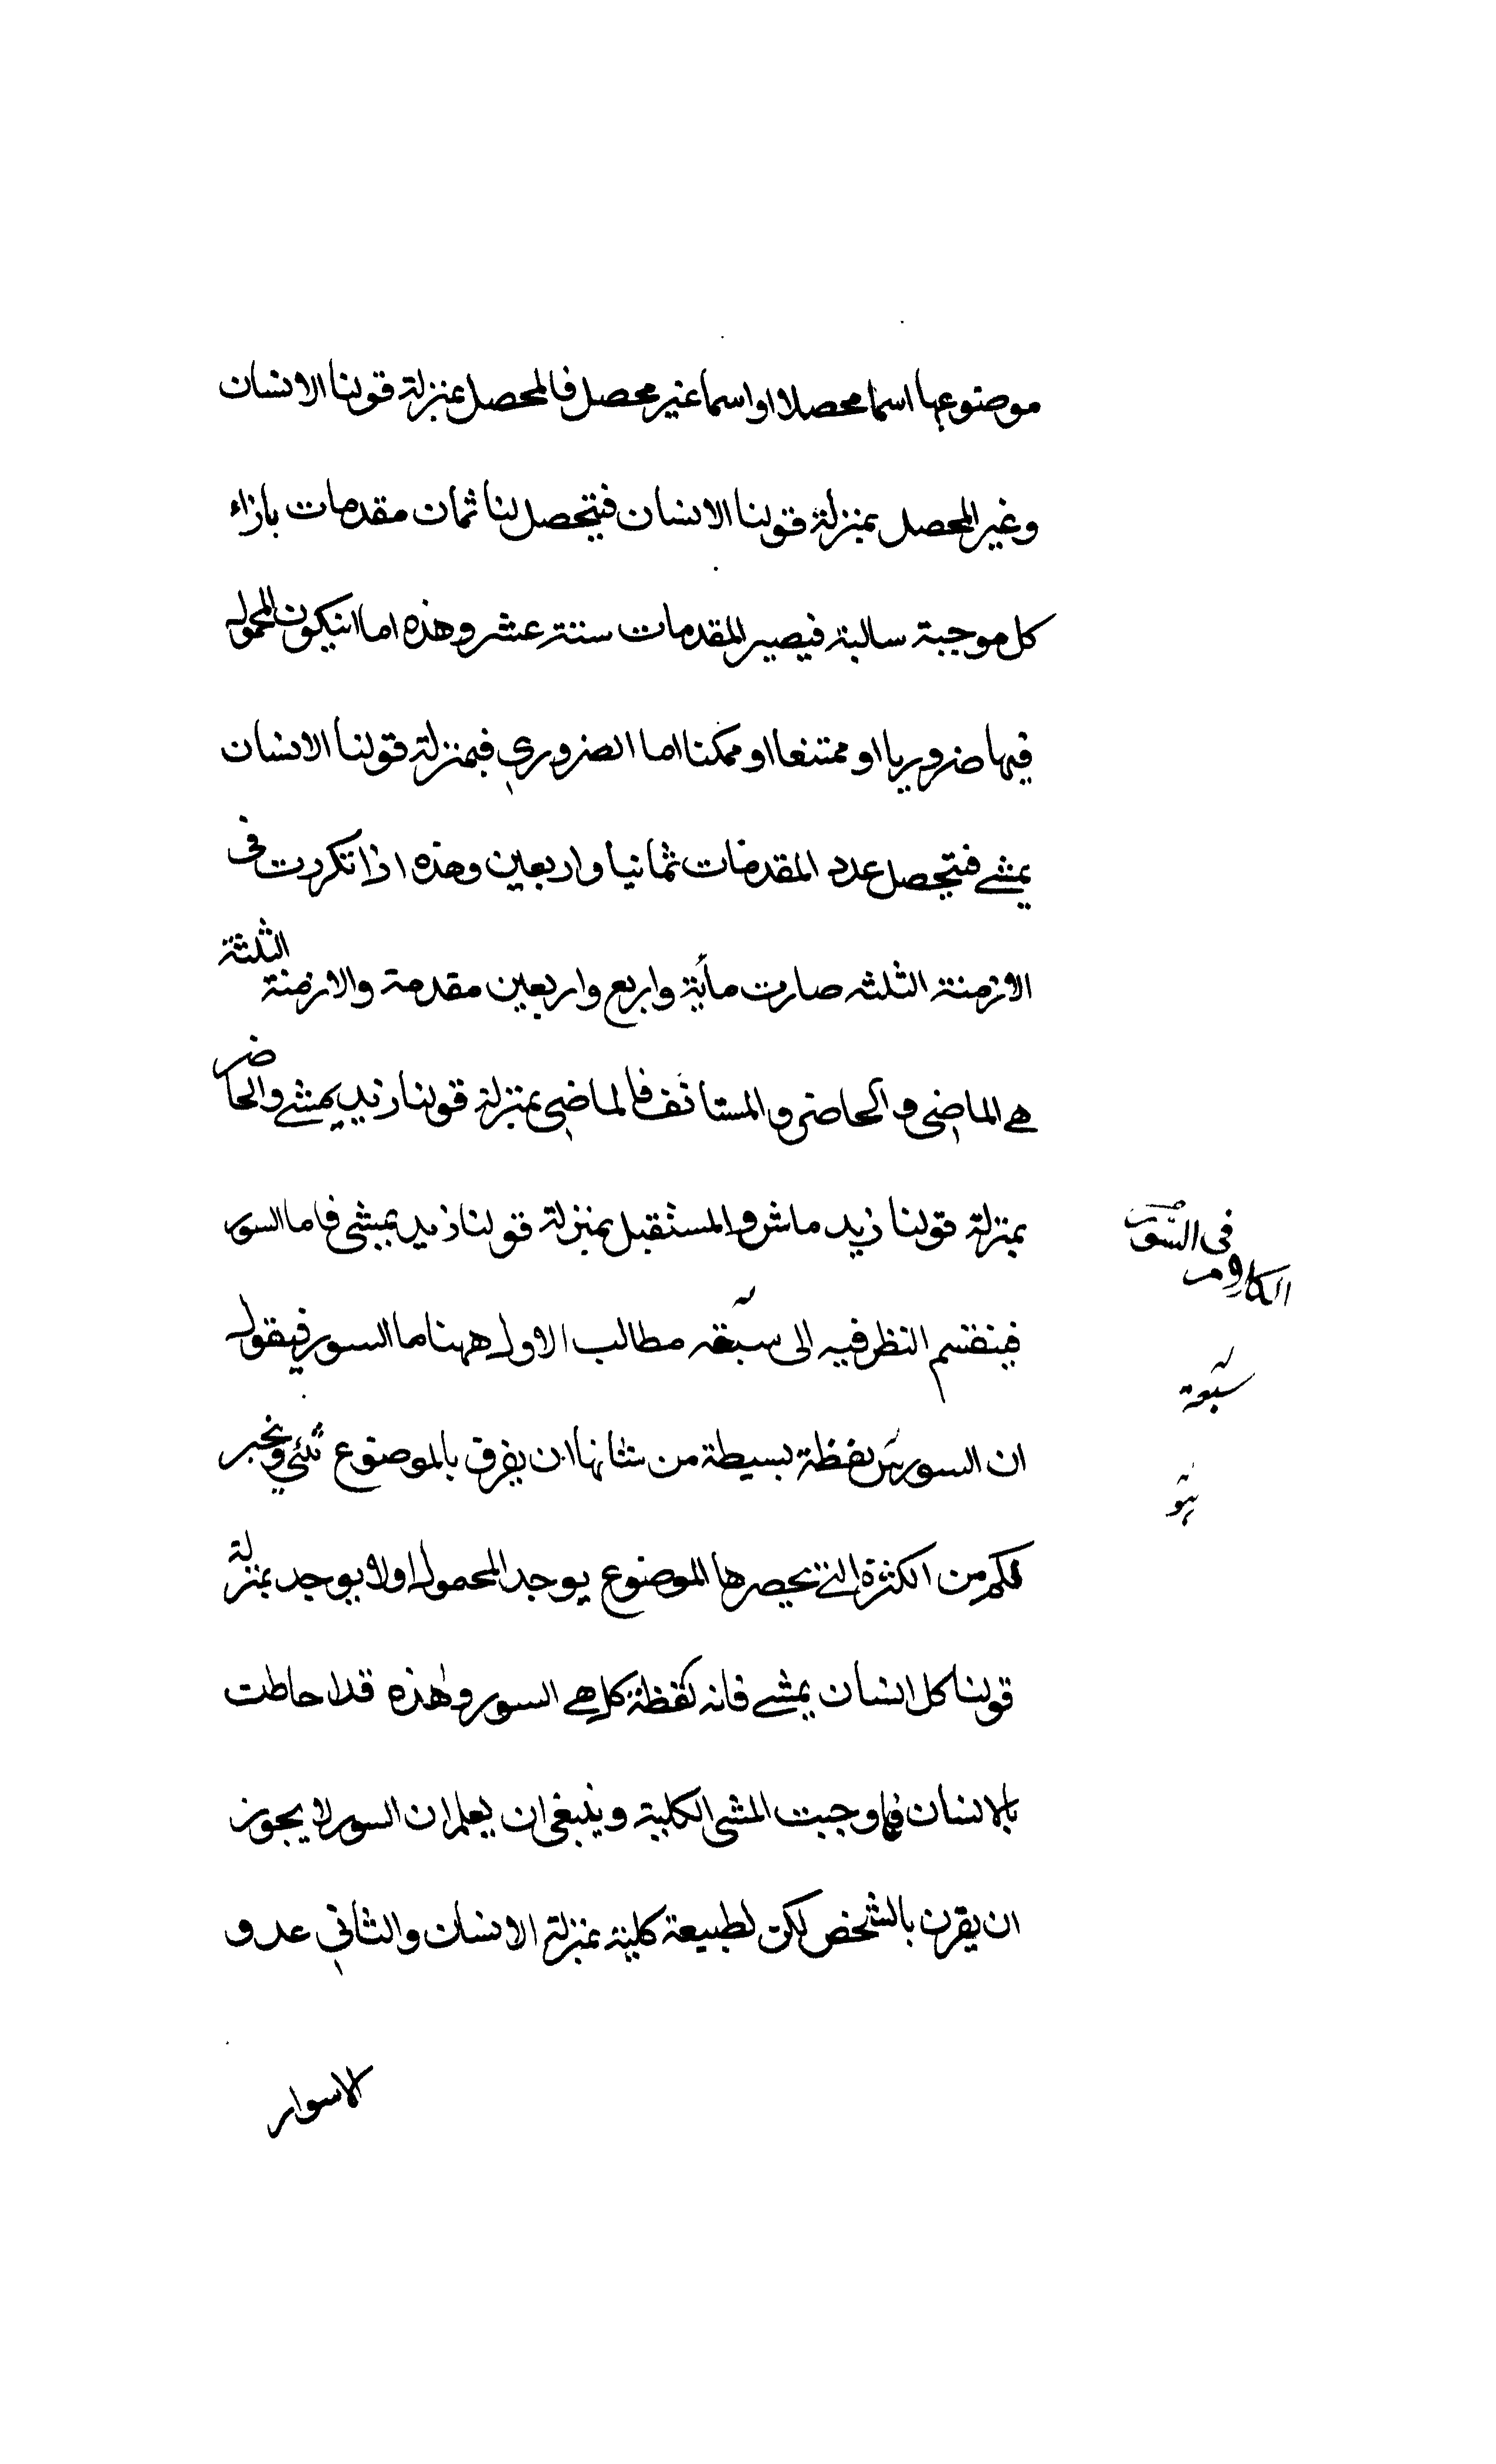 موضوعها اسما محصلا او اسما غير محصل فالمحصل بمنزلة قولنا الانسان
وغير المحصل بمنزلة قولنا الانسان فيتحصل لنا ثمان مقدمات بازاء
كل موجبة سالبة فيصير المقدمات ستة عشر وهذه اما انيكون المحمول
فيها ضروريا او ممتنعا او ممكنا اما الضروري فبمنزلة قولنا الانسان
يمشي فتحصل عدد المقدمات ثمانيا واربعين وهذه اذا تكررت في
الازمنة الثلثه صارت مأية واربع واربعين مقدمة والازمنة الثلثة
هي الماضي والحاضر والمستانف فالماضي بمنزلة قولنا زيد يمشي والحاضر
بمنزلة قولنا زيد ماش والمستقبل بمنزلة قولنا زيد يمشي فاما السور
الكلام في السور
فينقسم النظر فيه الى سبقه مطالب الاول ههنا ما السور فيقول
سبعة
ان السور لفظة بسيطة من شانها ان يفرق بالموضوع شئي ونخبر
فلكم من الكثرة التي يحصرها الموضوع يوجد المحمول اولا يوجد بمنزلة
قولنا كل انسان يمشي فانه لفظة كل هي السور وهذه قد احاطت
بالانسان فاوجبت المشي الكلية وينبغي ان يعلم ان السور لا يجوز
ان يقرن بالشخص لكن لطبيعة كلية بمنزلة الانسان والثاني عدو
الاسوار